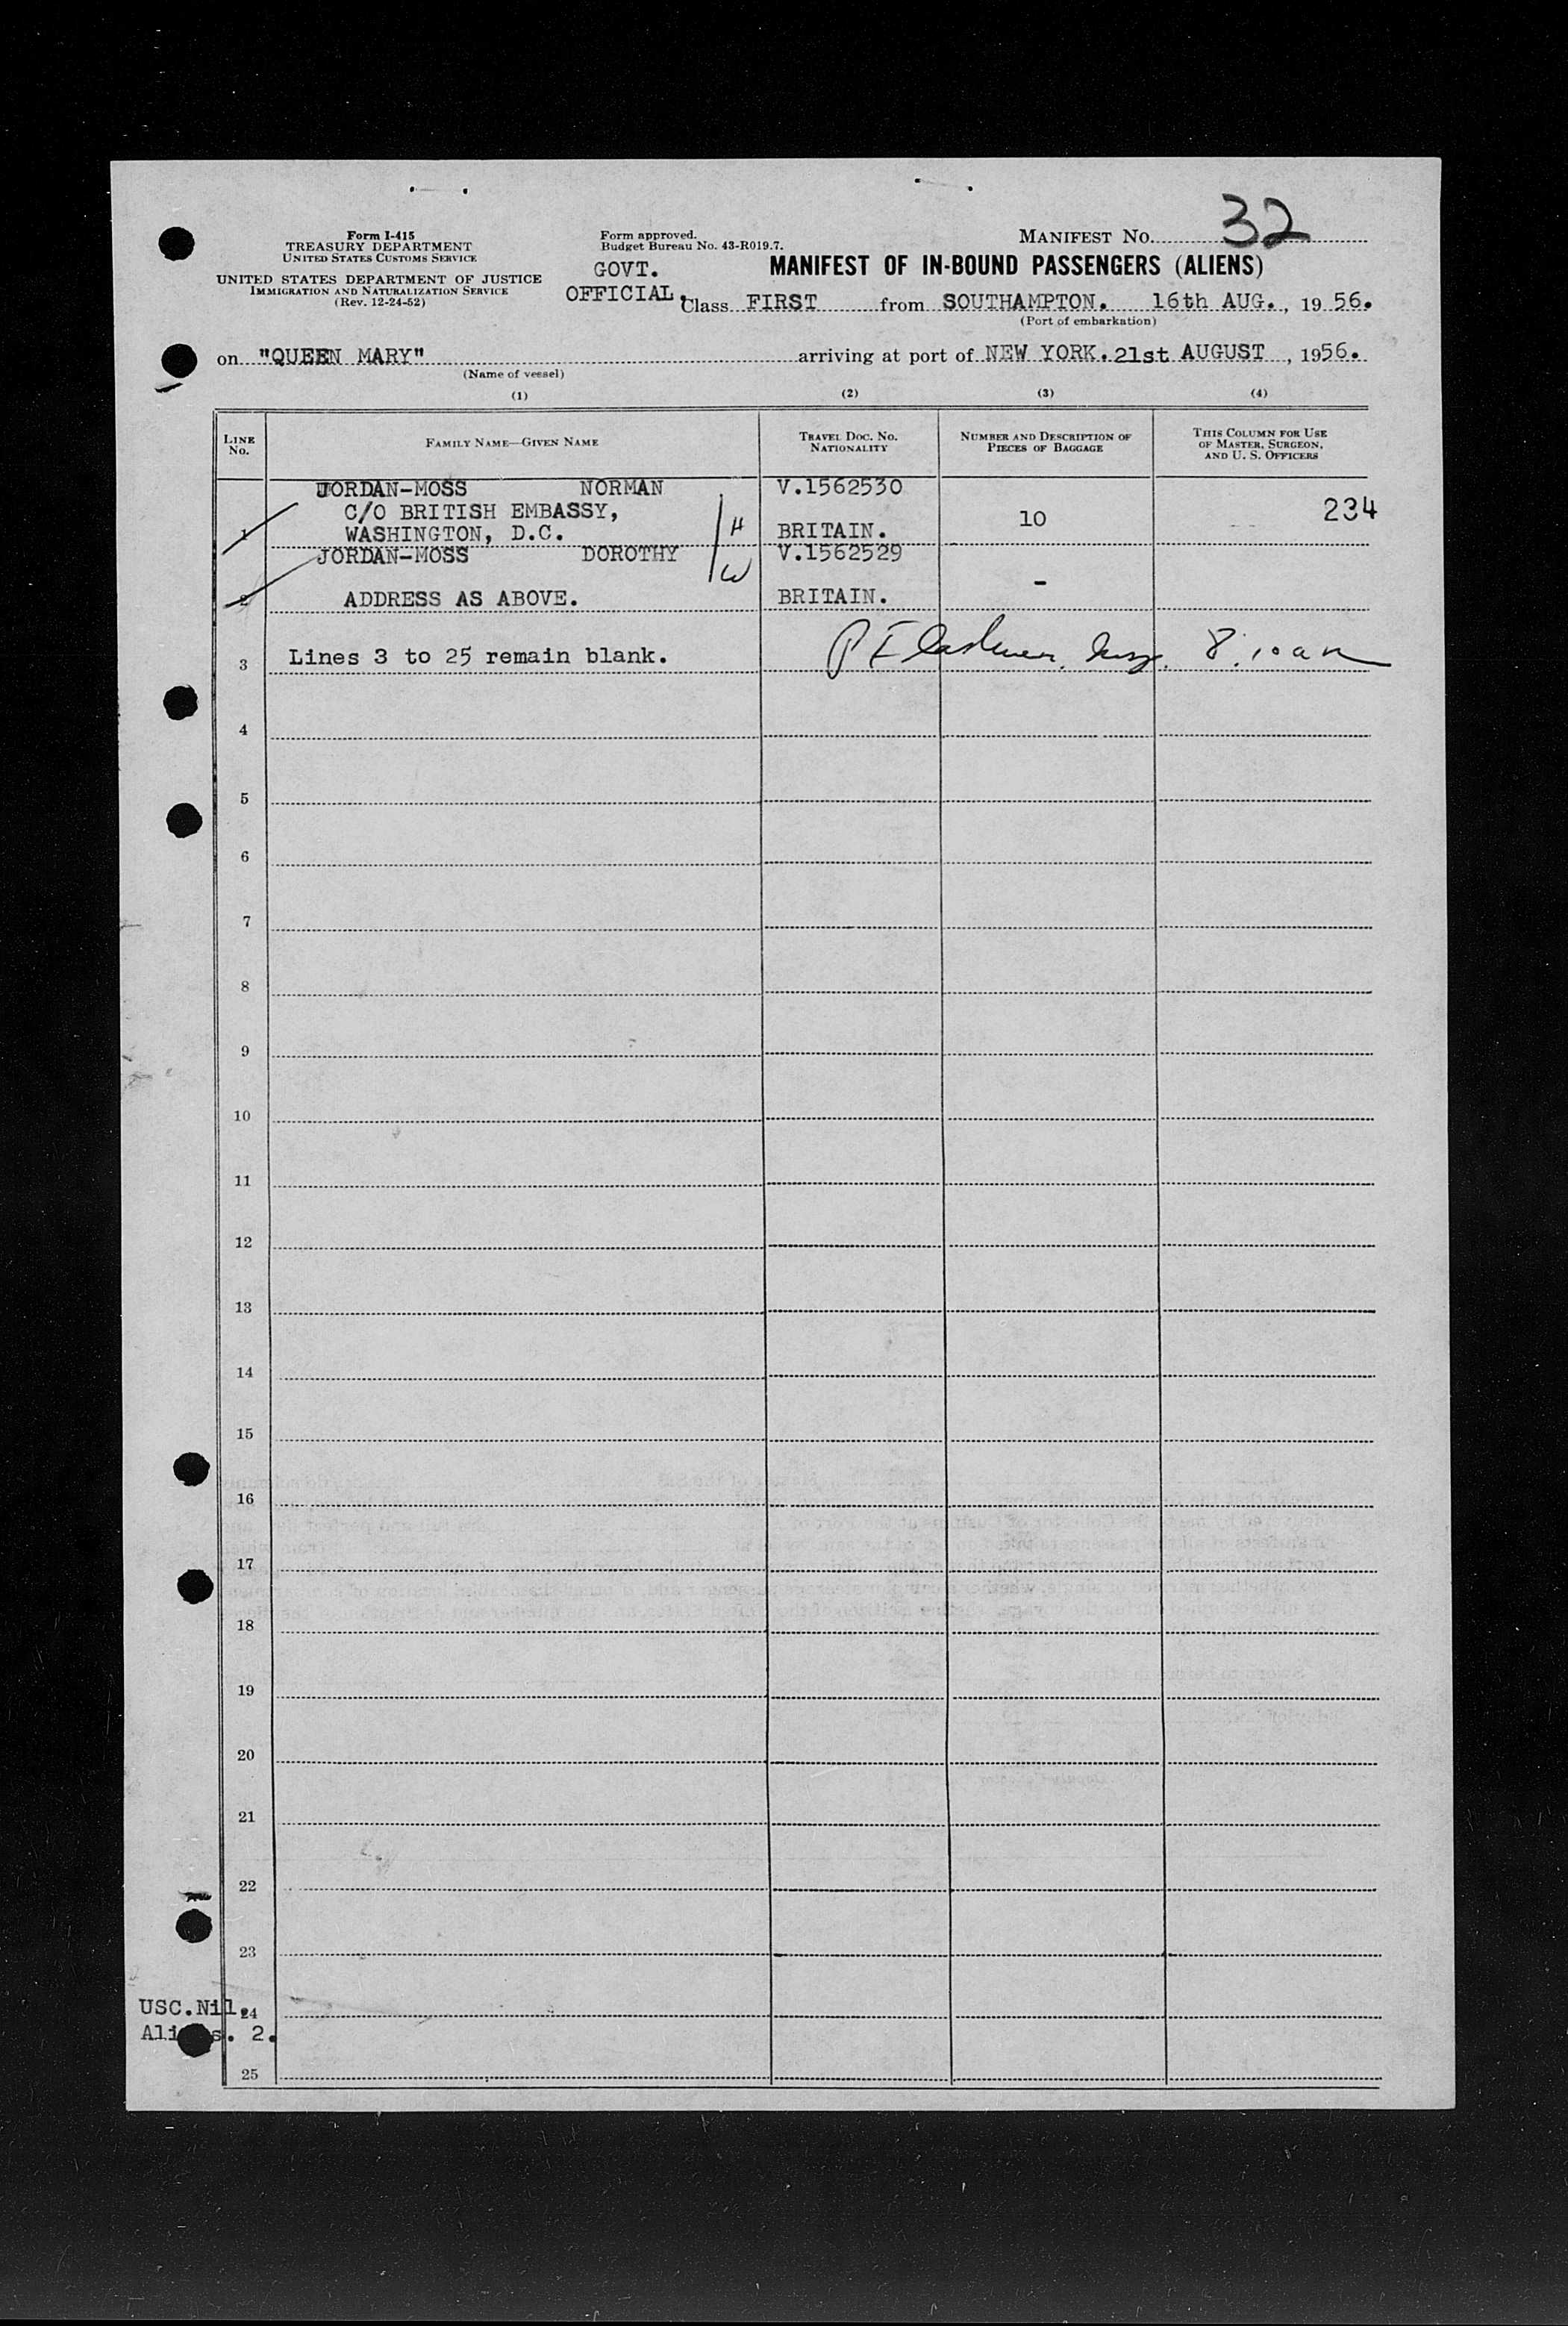 32
Form I-415
TREASURY DEPARTMENT
UNITED STATES CUSTOMS SERVICE
UNITED STATES DEPARTMENT OF JUSTICE
IMMIGRATION AND NATURALIZATION SERVICE
(Rev. 12-24-52)
Form approved.
Budget Bureau No. 43-R019.7.
MANIFEST NO.
GOVT.
OFFICIAL.
MANIFEST OF IN-BOUND PASSENGERS (ALIENS)
Class FIRST from SOUTHAMPTON. 16th AUG., 19 56.
(Port of embarkation)
on "QUEEN MARY" arriving at port of NEW YORK. 21st AUGUST, 1956.
(Name of vessel)
(1) (2) (3) (4)
LINE NO.
FAMILY NAME—GIVEN NAME
TRAVEL DOC. NO.
NATIONALITY
NUMBER AND DESCRIPTION OF
PIECES OF BAGGAGE
THIS COLUMN FOR USE
OF MASTER, SURGEON,
AND U. S. OFFICERS
JORDAN-MOSS NORMAN V.1562530
C/O BRITISH EMBASSY, 10 234
1 WASHINGTON, D.C. H BRITAIN.
JORDAN-MOSS DOROTHY V.1562529
W -
2 ADDRESS AS ABOVE. BRITAIN.
3 Lines 3 to 25 remain blank. 8.10 am
4
5
6
7
8
9
10
11
12
13
14
15
16
17
18
19
20
21
22
23
USC.Nil.
24
Aliens. 2.
25